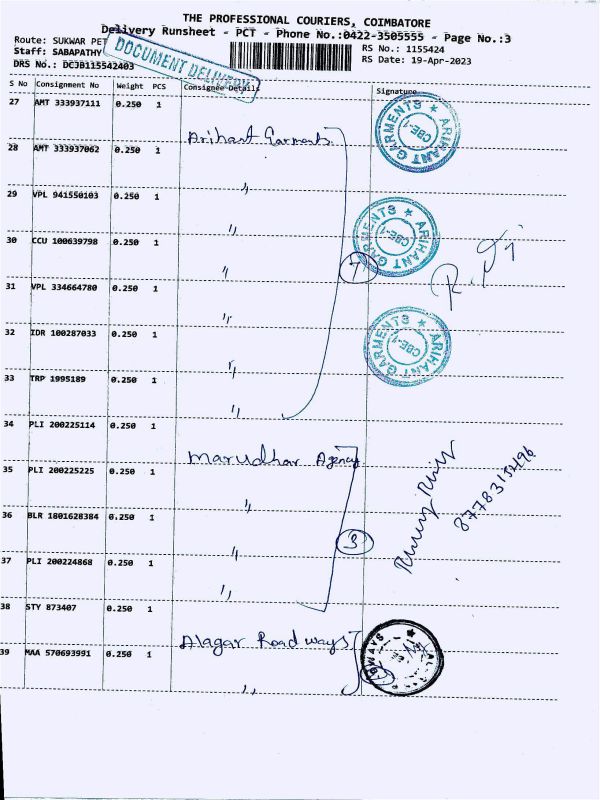 THE PROFESSIONAL COURIERS, COIMBATORE
Delivery Runsheet - PCT - Phone No.:0422-3505555 - Page No.:3
Route: SUKWAR PET
Staff: SABAPATHY
DRS No.: DCJB115542403
DOCUMENT DELIVERY
RS No.: 1155424
RS Date: 19-Apr-2023
S No Consignment No Weight PCS Consignee Details Signature
27 AMT 333937111 0.250 1
Arihant Garments
ARIHANT GARMENTS ★ CBE-1
28 AMT 333937062 0.250 1
"
29 VPL 941550103 0.250 1
"
ARIHANT GARMENTS ★ CBE-1
30 CCU 100639798 0.250 1
"
7
31 VPL 334664780 0.250 1
"
ARIHANT GARMENTS ★ CBE-1
32 IDR 100287033 0.250 1
"
33 TRP 1995189 0.250 1
"
34 PLI 200225114 0.250 1
Marudhar Agency
35 PLI 200225225 0.250 1
"
36 BLR 1801628384 0.250 1
"
3
37 PLI 200224868 0.250 1
"
38 STY 873407 0.250 1
Alagar Roadways
39 MAA 570693991 0.250 1
"